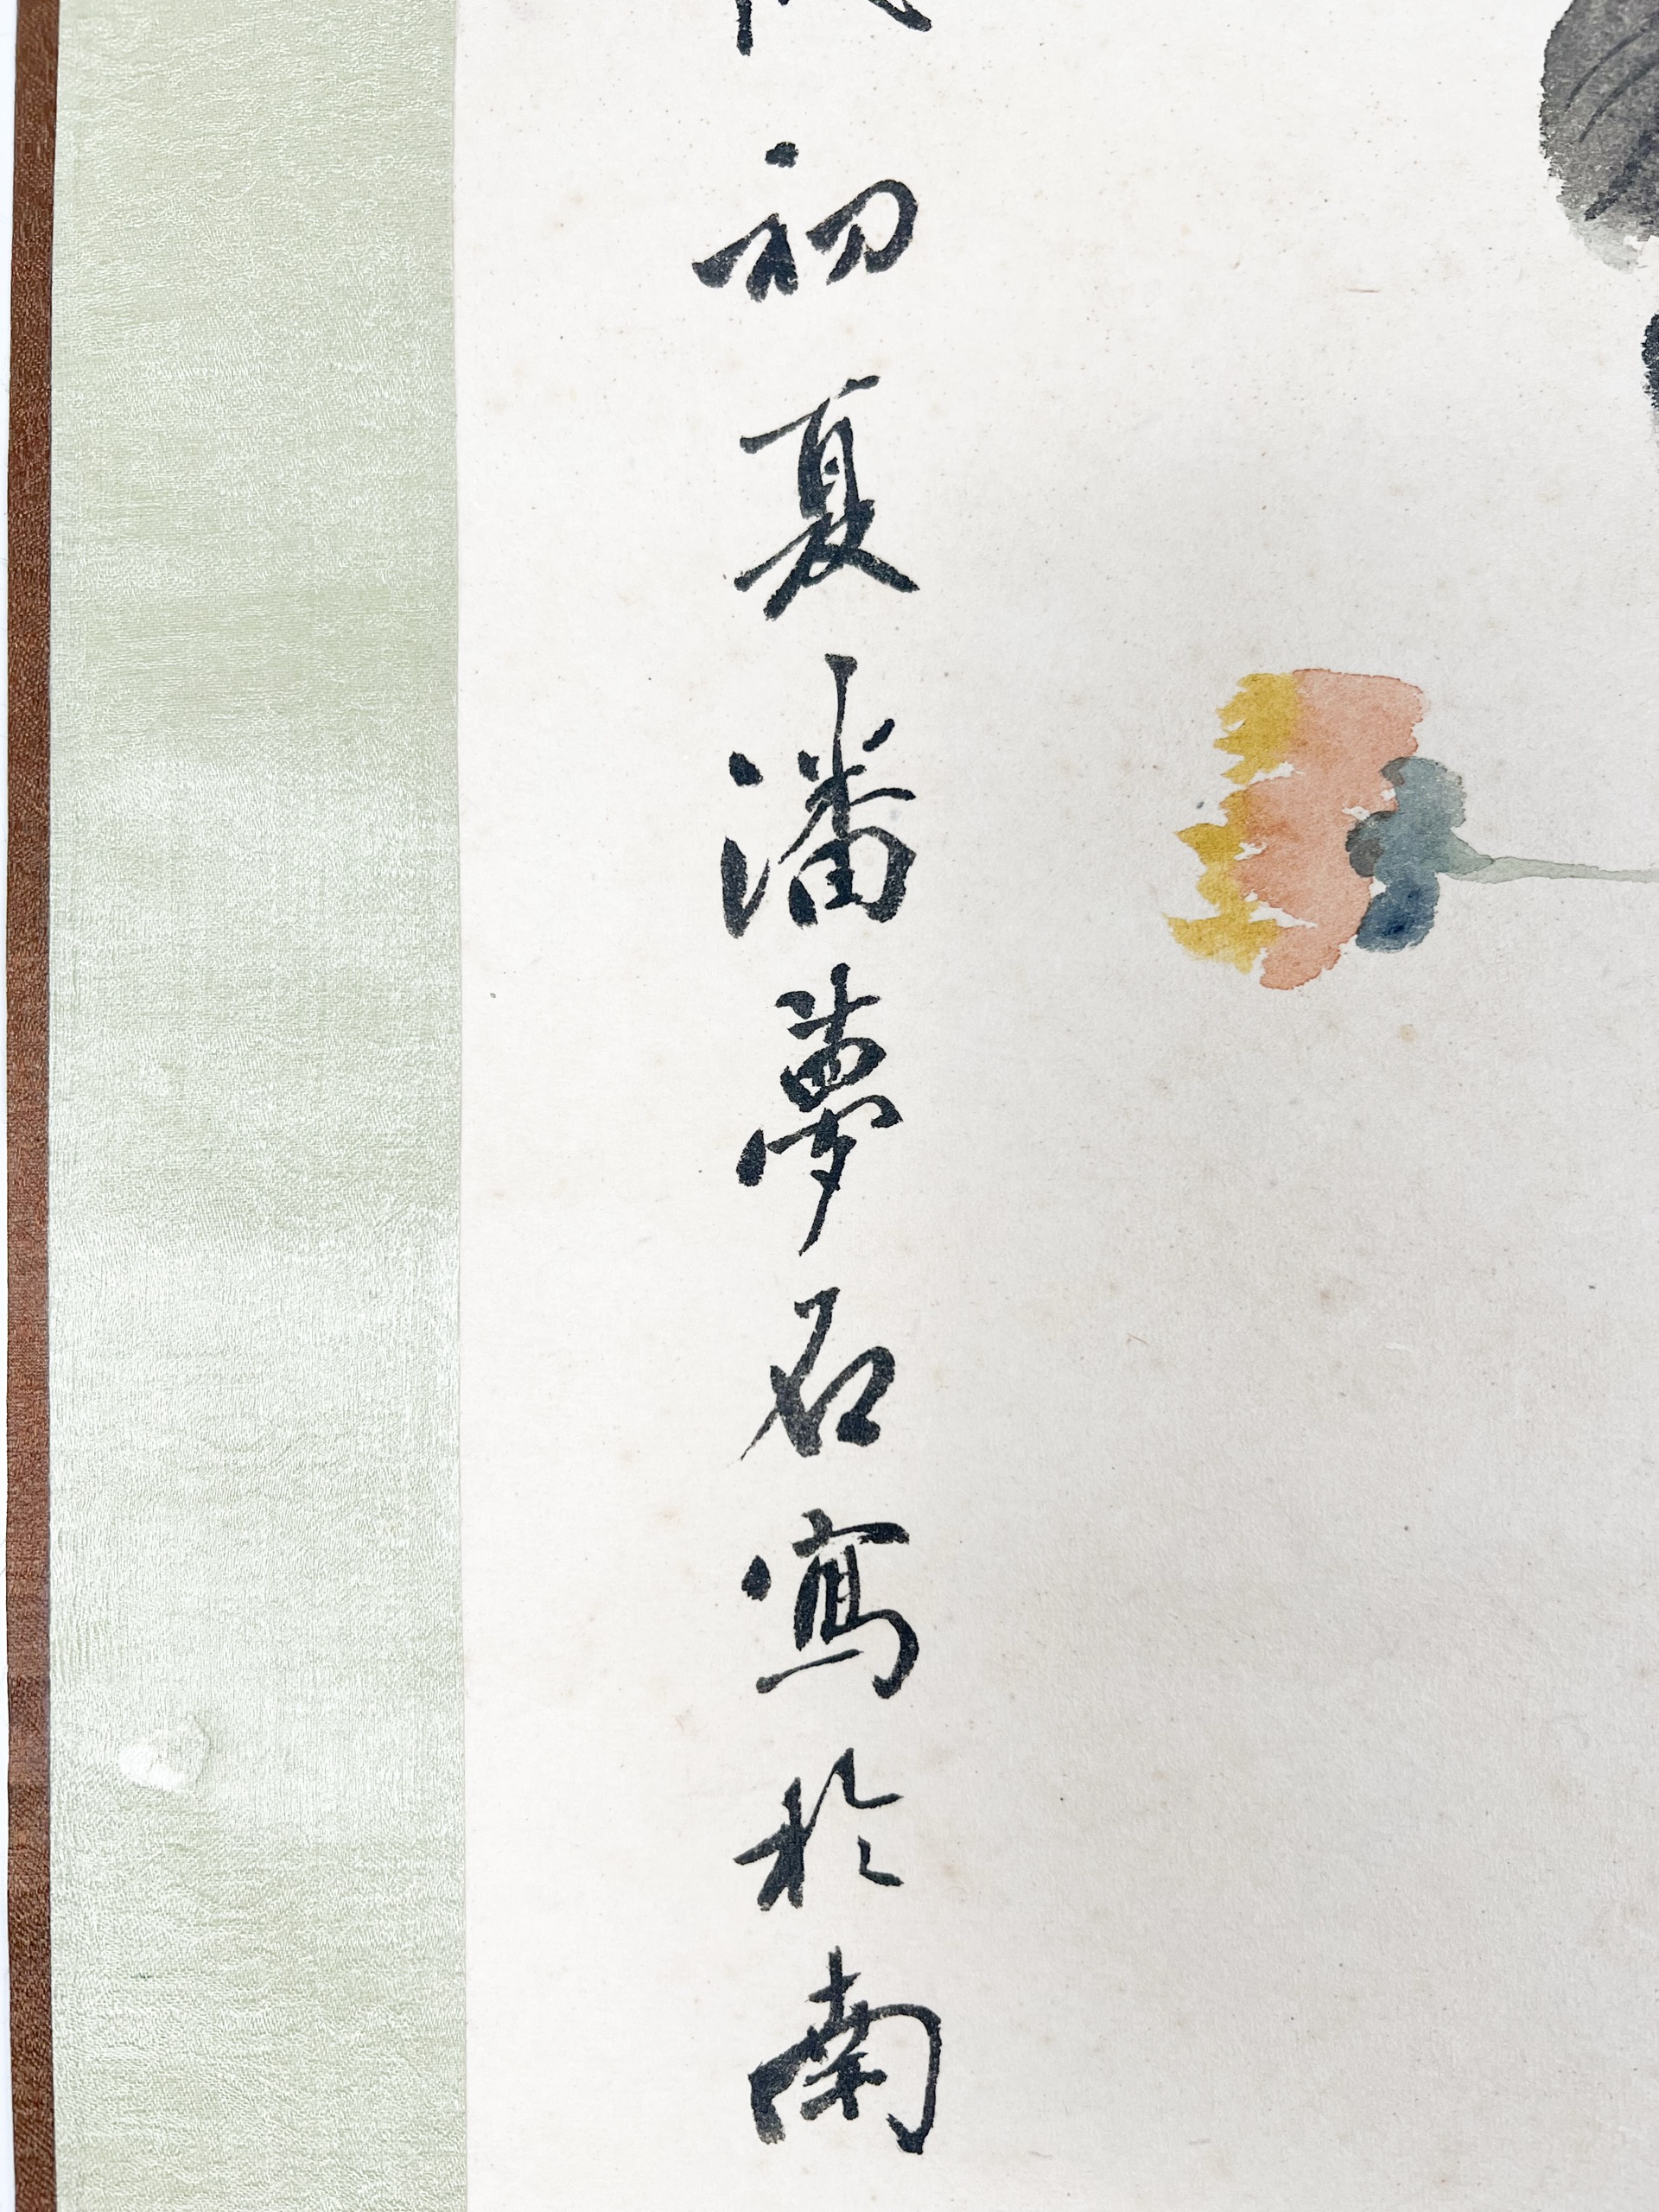 初夏潘夢石寫於南